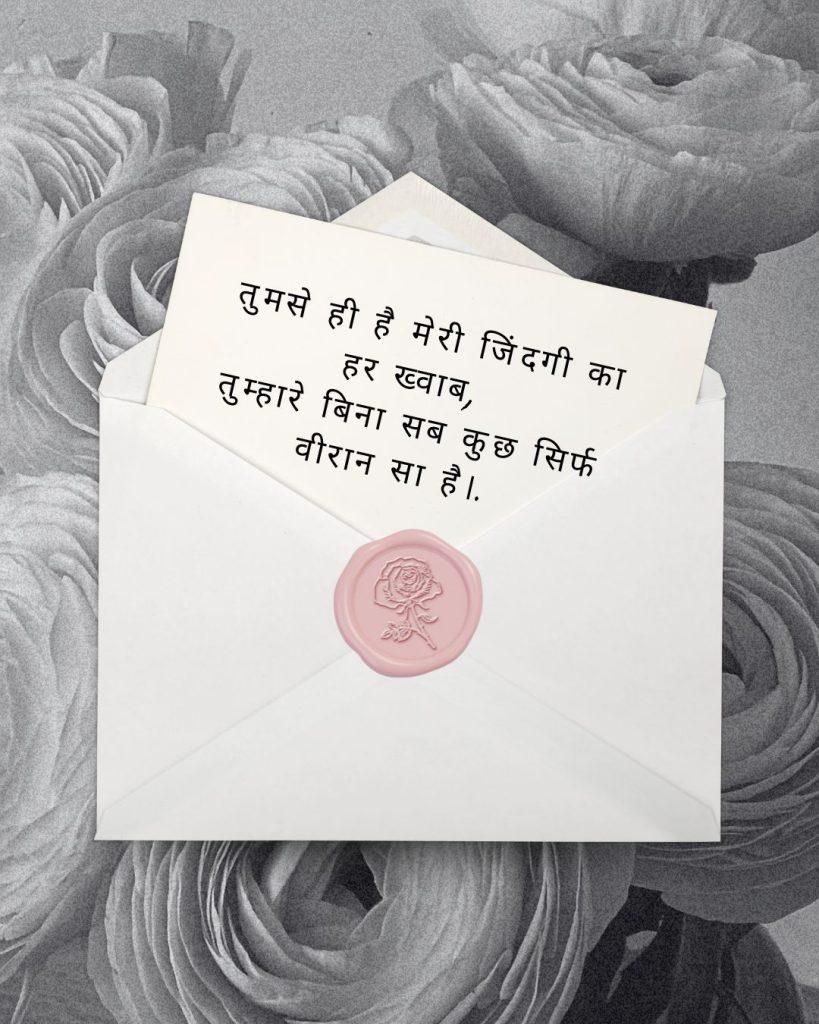 तुमसे ही है मेरी जिंदगी का
हर ख्वाब,
तुम्हारे बिना सब कुछ सिर्फ
वीरान सा है।.